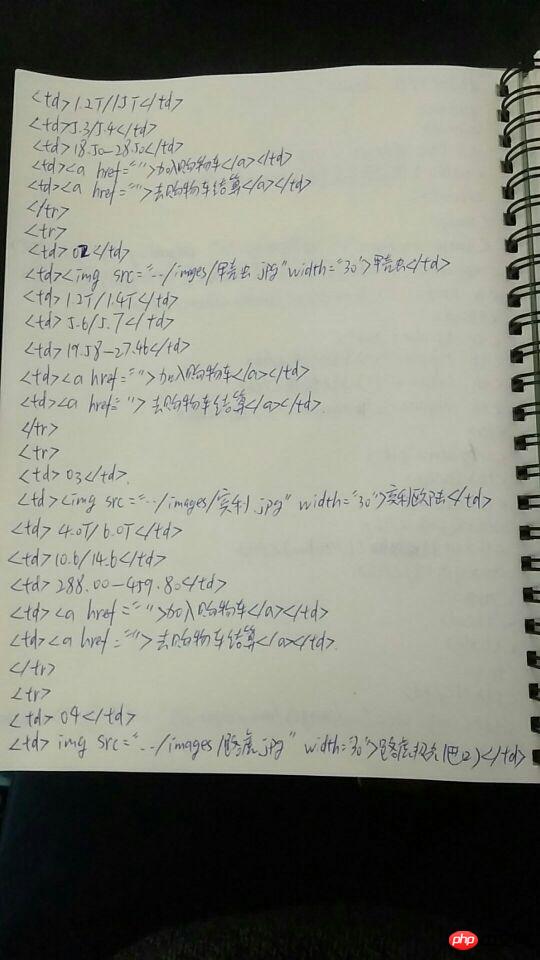 <td>1.2T/1.5T</td>
<td>5.3/5.4</td>
<td>18.50-28.50</td>
<td><a href="">加入购物车</a></td>
<td><a href="">去购物车结算</a></td>
</tr>
<tr>
<td>02</td>
<td><img src="../images/甲壳虫.jpg" width="30">甲壳虫</td>
<td>1.2T/1.4T</td>
<td>5.6/5.7</td>
<td>19.58-27.46</td>
<td><a href="">加入购物车</a></td>
<td><a href="">去购物车结算</a></td>
</tr>
<tr>
<td>03</td>
<td><img src="../images/宾利.jpg" width="30">宾利欧陆</td>
<td>4.0T/6.0T</td>
<td>10.6/14.6</td>
<td>288.00-459.80</td>
<td><a href="">加入购物车</a></td>
<td><a href="">去购物车结算</a></td>
</tr>
<tr>
<td>04</td>
<td>img src="../images/路虎.jpg" width="30">路虎极光()</td>
php